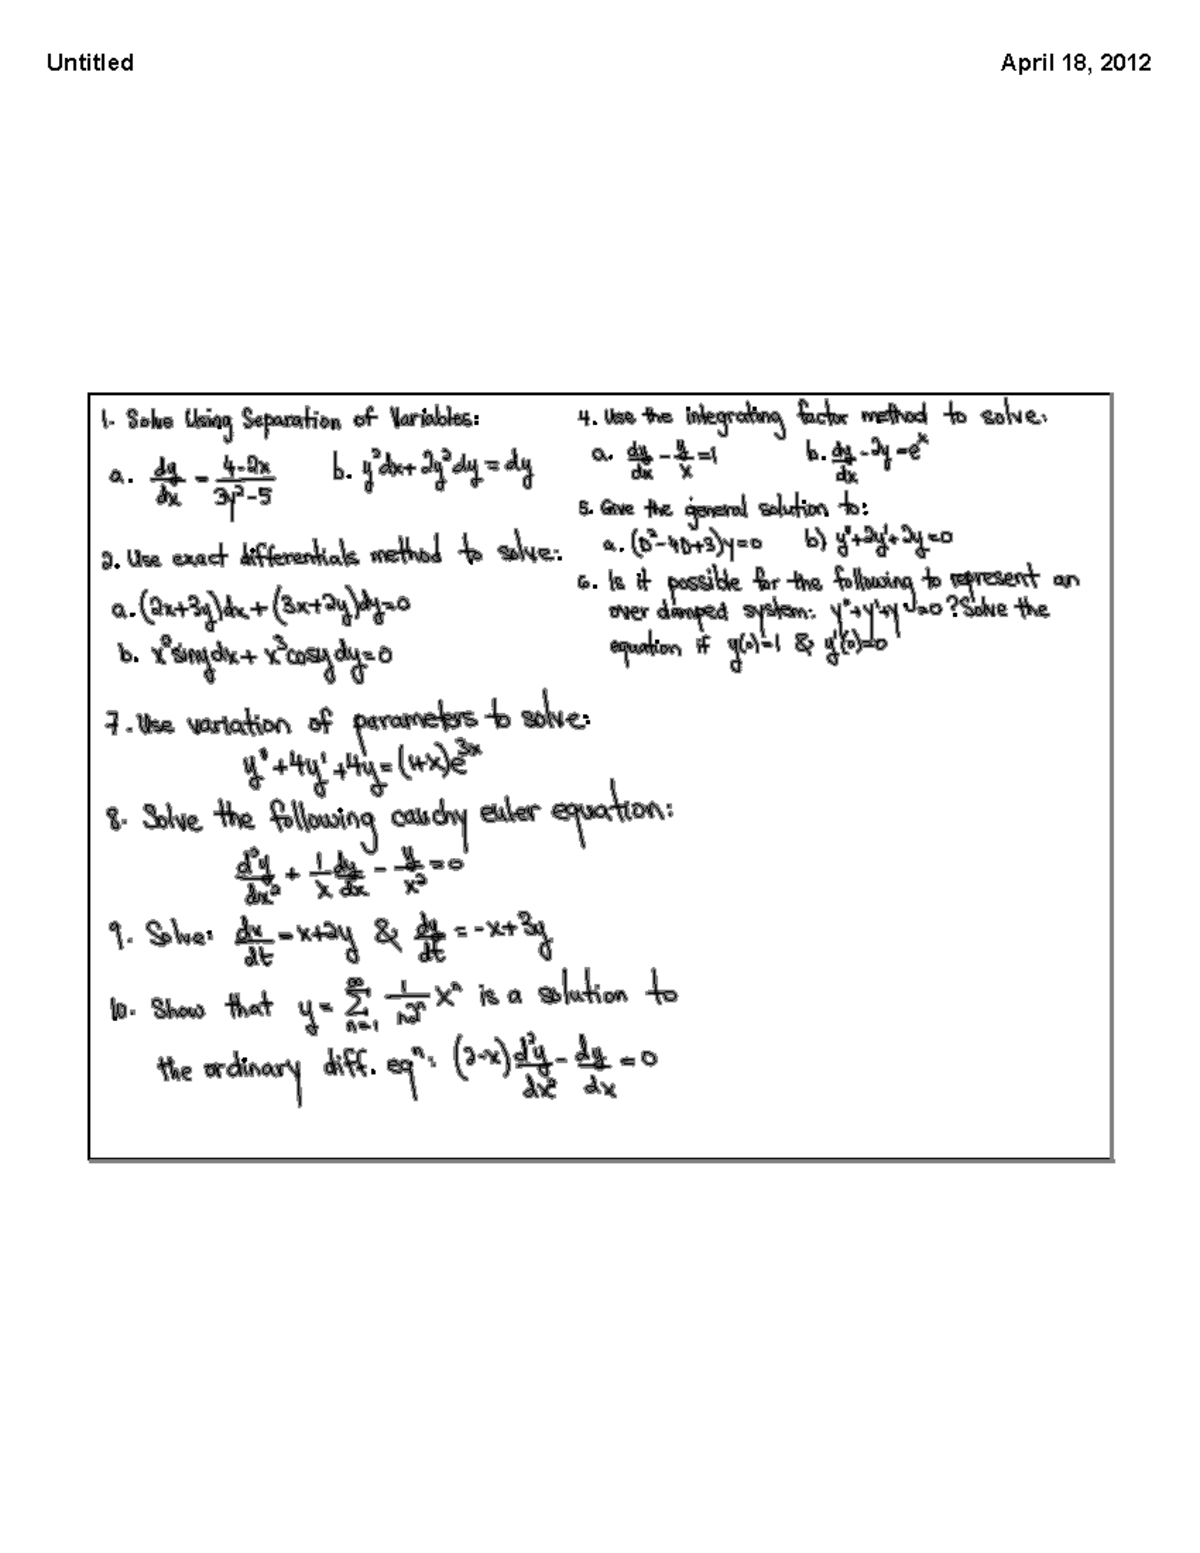 Untitled
April 18, 2012
1. Solve Using Separation of Variables:
a. dy/dx = (4-2x)/(3y²-5)   b. y²dx + 2y³dy = dy
2. Use exact differentials method to solve:
a. (2x+3y)dx + (3x+2y)dy=0
b. x²siny dx + x³cosy dy=0
4. Use the integrating factor method to solve:
a. dy/dx - y/x = 1   b. dy/dx - 2y = eˣ
5. Give the general solution to:
a. (D²-4D+3)y=0   b) y''+2y'+2y=0
6. Is it possible for the following to represent an
over damped system: y''+y'+y=0? Solve the
equation if y(0)=1 & y'(0)=0
7. Use variation of parameters to solve:
y''+4y'+4y=(1+x)e³ˣ
8. Solve the following cauchy euler equation:
d²y/dx² + 1/x dy/dx - y/x² = 0
9. Solve: dx/dt = x+2y & dy/dt = -x+3y
10. Show that y = ∑_{n=1}^{∞} 1/(n2ⁿ) xⁿ is a solution to
the ordinary diff. eqⁿ: (2-x) d²y/dx² - dy/dx = 0